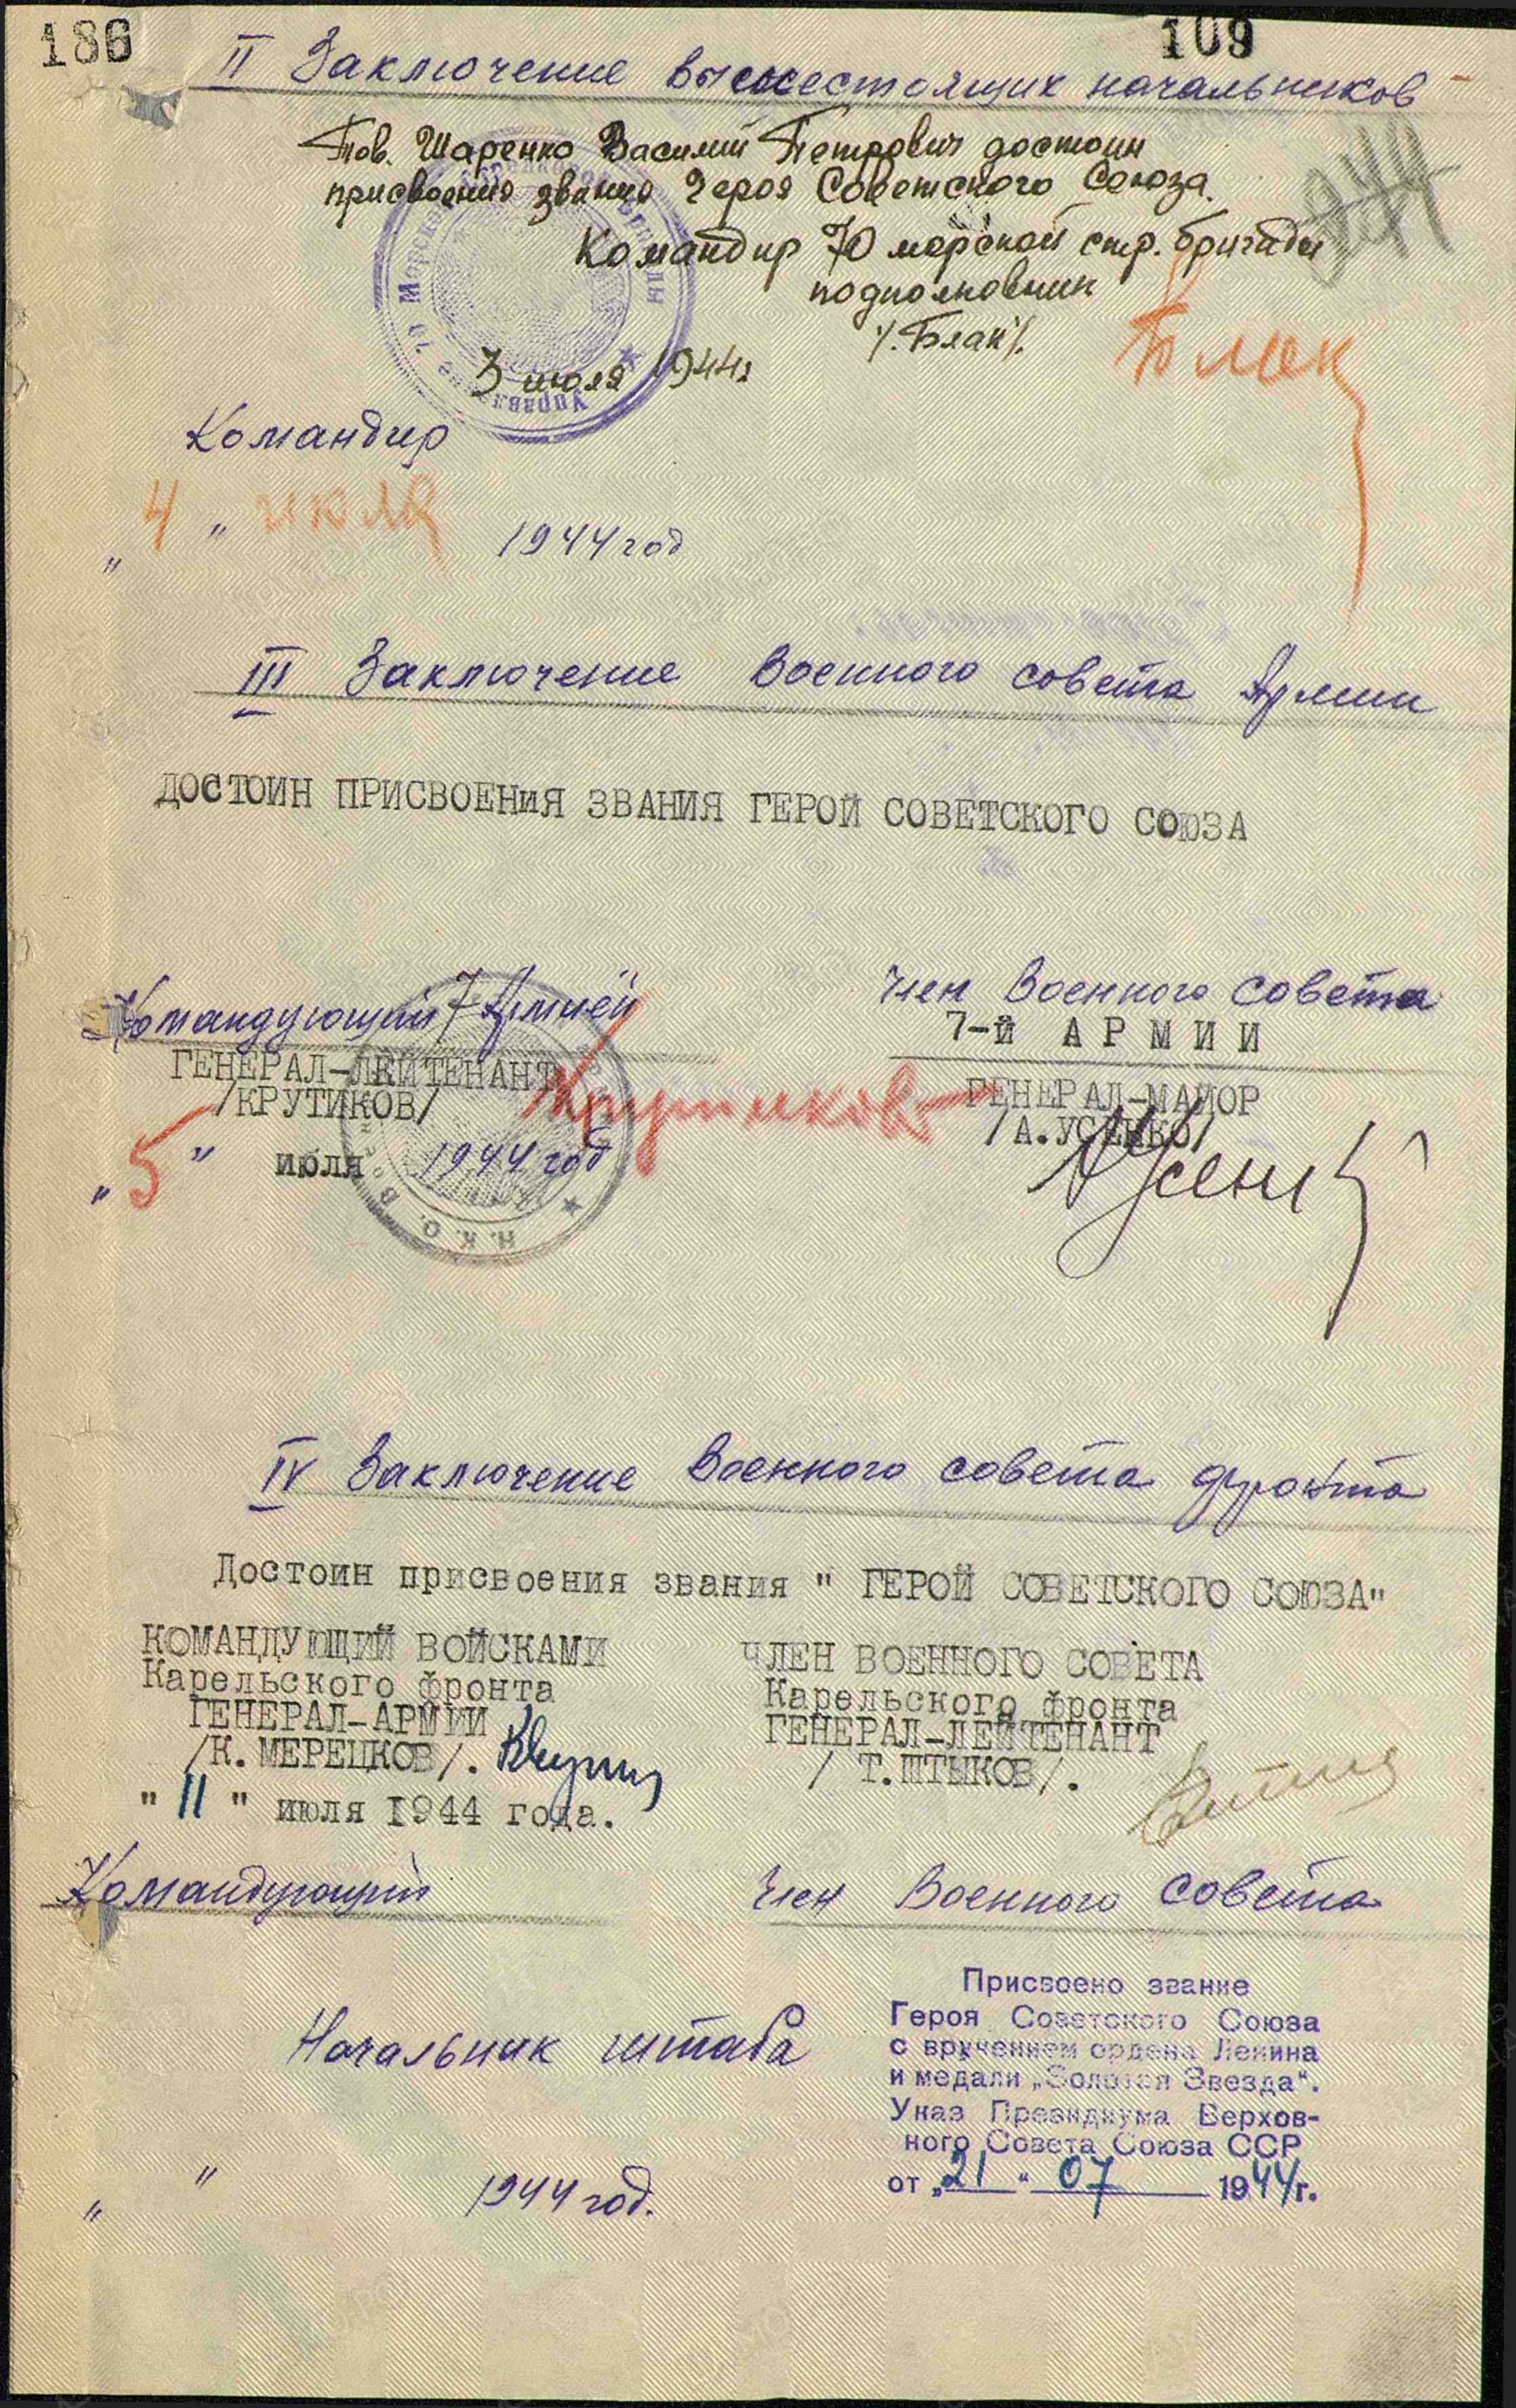 186
109
II Заключение вышестоящих начальников
Тов. Шаренко Василий Петрович достоин
присвоения звания Героя Советского Союза.
Командир 70 морской стр. бригады
подполковник
/.Блак/.
3 июля 1944г
Командир
" 4 " июля 1944 год
III Заключение Военного совета Армии
ДОСТОИН ПРИСВОЕНИЯ ЗВАНИЯ ГЕРОЙ СОВЕТСКОГО СОЮЗА
Командующий 7 Армией
ГЕНЕРАЛ-ЛЕЙТЕНАНТ
/КРУТИКОВ/ Крутиков
" 5 " июля 1944 год
Н.К.О.
Член Военного совета
7-й АРМИИ
ГЕНЕРАЛ-МАЙОР
/А.УСЕНКО/
IV Заключение Военного совета фронта
Достоин присвоения звания " ГЕРОЙ СОВЕТСКОГО СОЮЗА"
КОМАНДУЮЩИЙ ВОЙСКАМИ
Карельского фронта
ГЕНЕРАЛ-АРМИИ
/К. МЕРЕЦКОВ/.
" 11 " июля 1944 года.
ЧЛЕН ВОЕННОГО СОВЕТА
Карельского фронта
ГЕНЕРАЛ-ЛЕЙТЕНАНТ
/ Т.ШТЫКОВ/.
Командующий
Член Военного совета
Начальник штаба
" " 1944 год.
Присвоено звание
Героя Советского Союза
с вручением ордена Ленина
и медали „Золотая Звезда“.
Указ Президиума Верхов-
ного Совета Союза ССР
от „21“ 07 1944г.